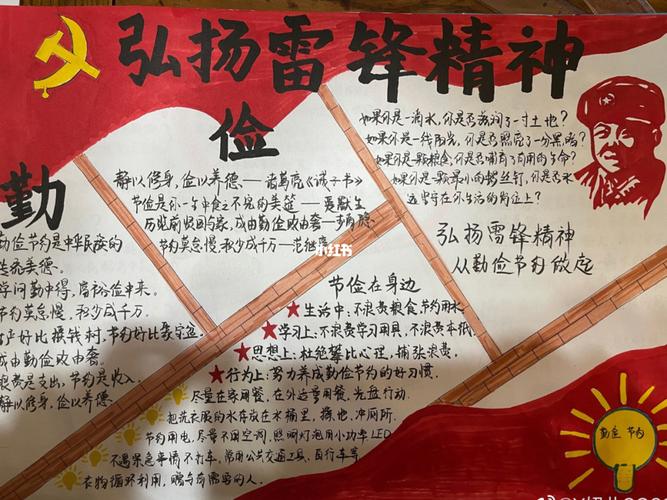 弘扬雷锋精神
勤
俭
如果你是一滴水,你是否滋润了一寸土地?
如果你是一线阳光,你是否照亮了一分黑暗?
如果你是一颗粮食,你是否哺育了有用的生命?
如果你是一颗最小的螺丝钉,你是否永
远坚守在你生活的岗位上?
静以修身,俭以养德——诸葛亮《诫子书》
节俭是你一生中食之不完的美筵——爱默生
历览前贤国与家,成由勤俭败由奢——李商隐
节约莫怠慢,积少成千万——范继亭
小红书
弘扬雷锋精神
从勤俭节约做起
勤俭节约是中华民族的
传统美德。
学问勤中得,富裕俭中来。
节约莫怠慢,积少成千万。
生产好比摇钱树,节约好比聚宝盆。
成由勤俭败由奢。
浪费是支出,节约是收入。
静以修身,俭以养德。
节俭在身边
★生活中:不浪费粮食,节约用水
★学习上:不浪费学习用具,不浪费本纸。
★思想上:杜绝攀比心理,铺张浪费。
★行为上:努力养成勤俭节约的好习惯。
尽量在家用餐、在外适量用餐、光盘行动。
把洗衣服的水存放在水桶里,擦地、冲厕所。
节约用电,尽量不用空调,照明灯泡用小功率LED
不遇紧急事情不打车,常用公共交通工具、自行车等
衣物循环利用,赠与有需要的人。
勤俭 节约